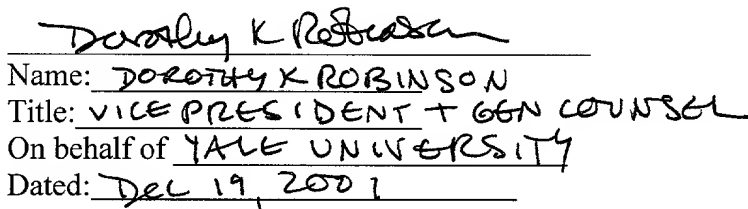 Dorothy K Robinson
Name: DOROTHY K ROBINSON
Title: VICE PRESIDENT + GEN COUNSEL
On behalf of YALE UNIVERSITY
Dated: Dec 19, 2001